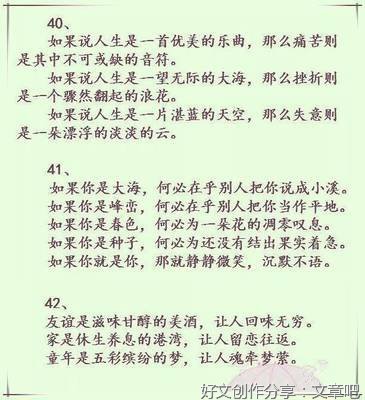 40、
如果说人生是一首优美的乐曲，那么痛苦则
是其中不可或缺的音符。
如果说人生是一望无际的大海，那么挫折则
是一个骤然翻起的浪花。
如果说人生是一片湛蓝的天空，那么失意则
是一朵漂浮的淡淡的云。
41、
如果你是大海，何必在乎别人把你说成小溪。
如果你是峰峦，何必在乎别人把你当作平地。
如果你是春色，何必为一朵花的凋零叹息。
如果你是种子，何必为还没有结出果实着急。
如果你就是你，那就静静微笑，沉默不语。
42、
友谊是滋味甘醇的美酒，让人回味无穷。
家是休生养息的港湾，让人留恋往返。
童年是五彩缤纷的梦，让人魂牵梦萦。
好文创作分享：文章吧